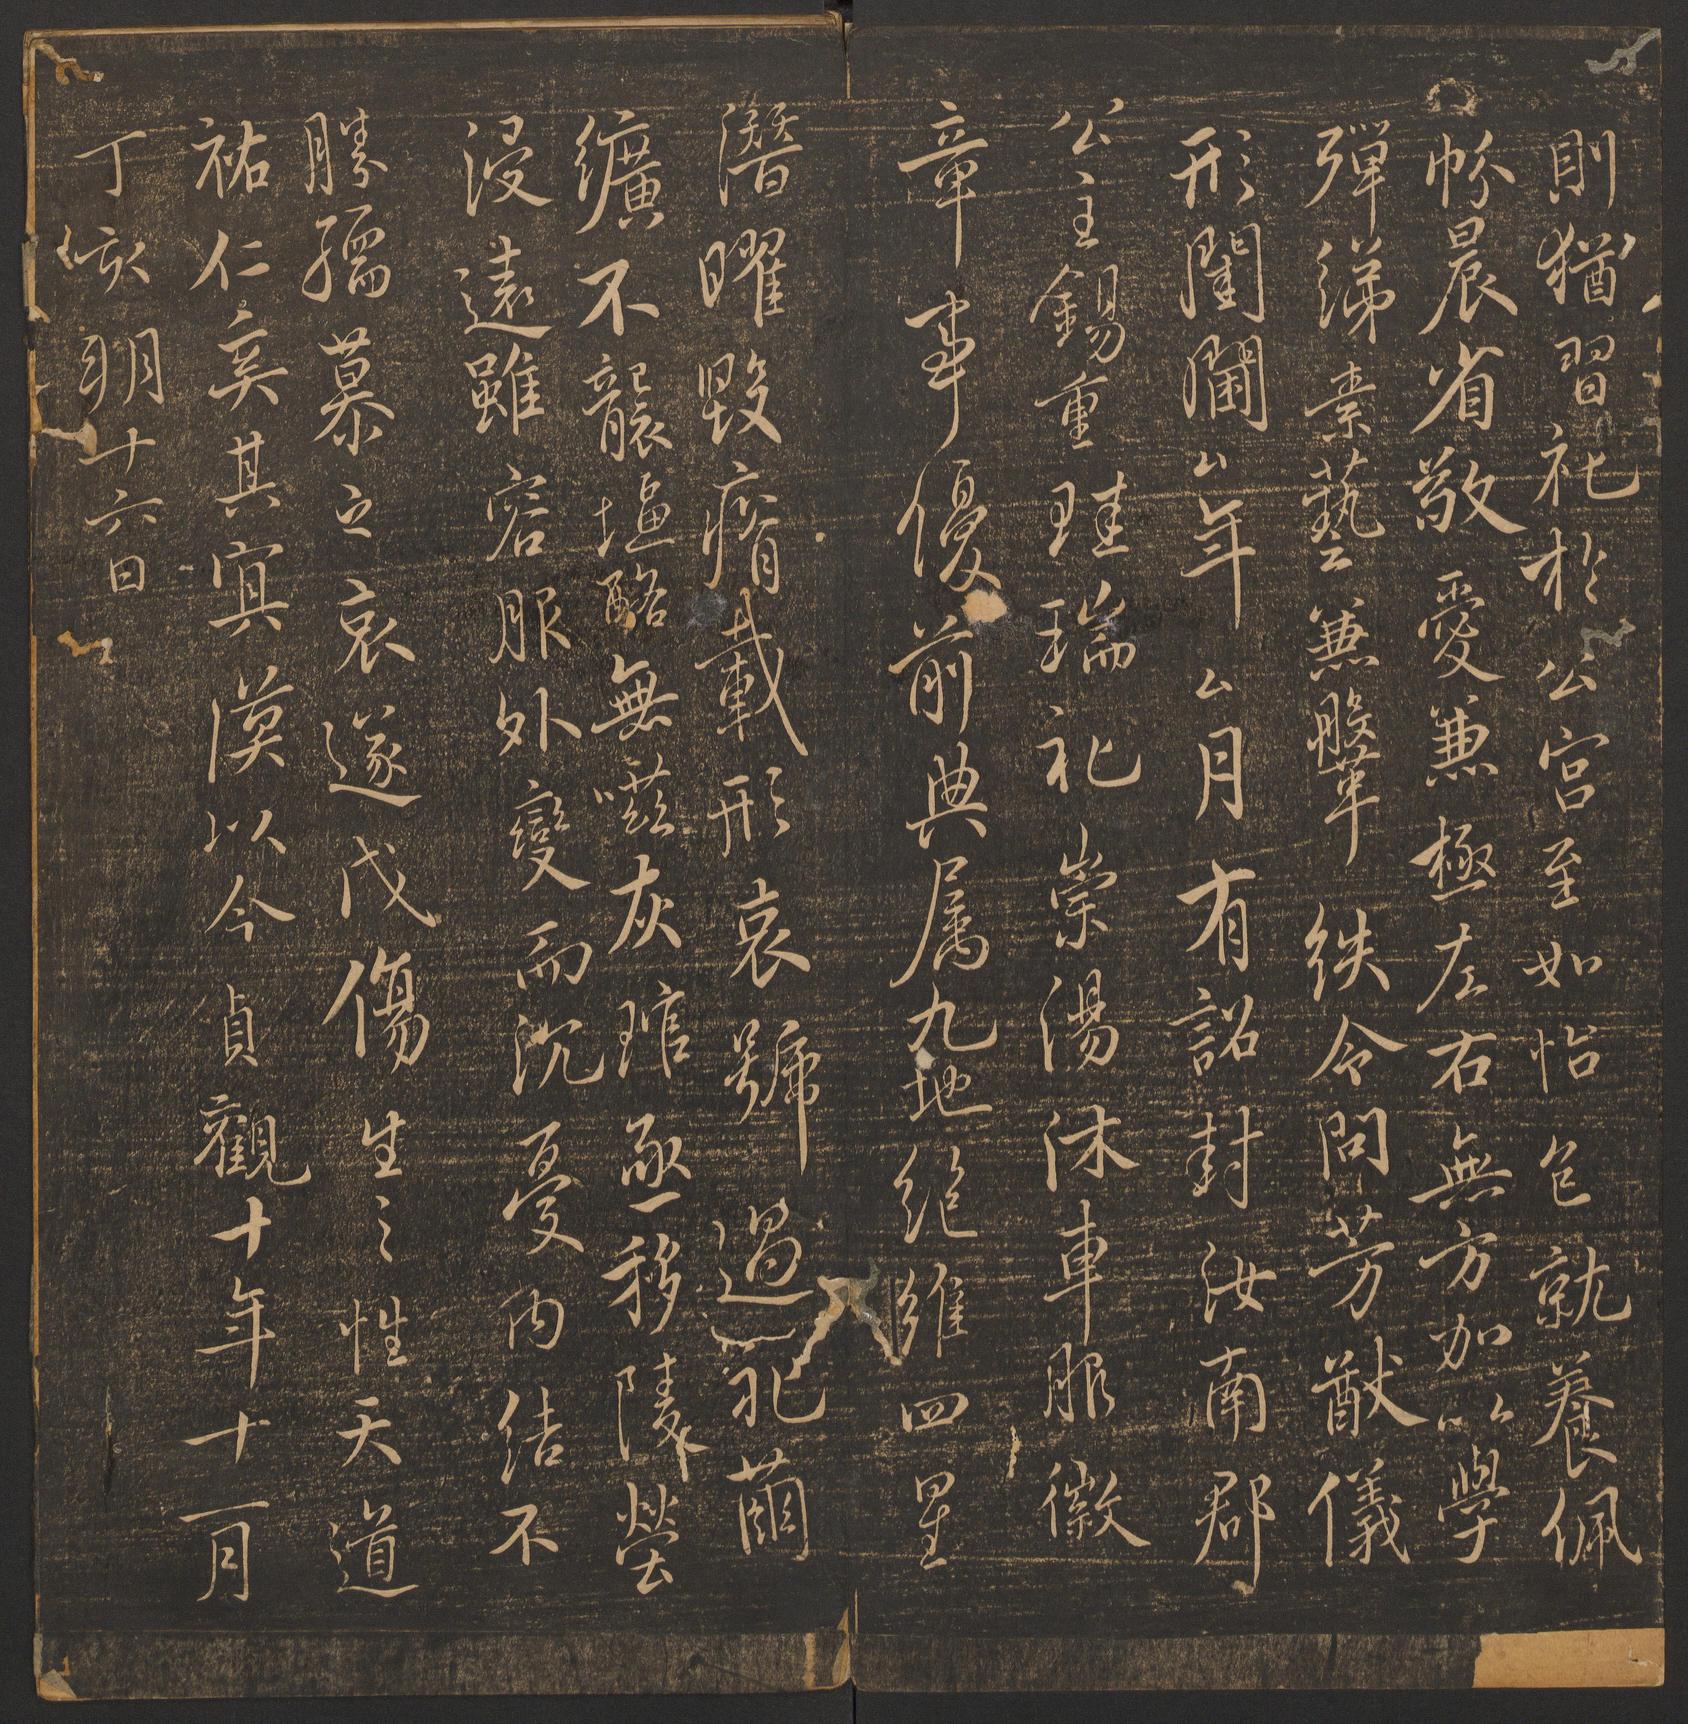 則猶習礼於公宮至如怡色就養佩
帉晨省敬愛兼極左右無方加以學
彈綈素藝兼鞶革絲令問芳猷儀
形閨閫厶年厶月有詔封汝南郡
公主錫重珪瑞礼崇湯沐車服徽
章事優前典属九地絕維四星
潛曜毀瘠載形哀號過礼繭
纊不襲塩酪無嗞灰琯亟移陵塋
浸遠雖容服外變而沉憂內結不
勝孺慕之哀遂戊傷生之性天道
祐仁奚其冥漠以今貞觀十年十一月
丁亥朔十六日